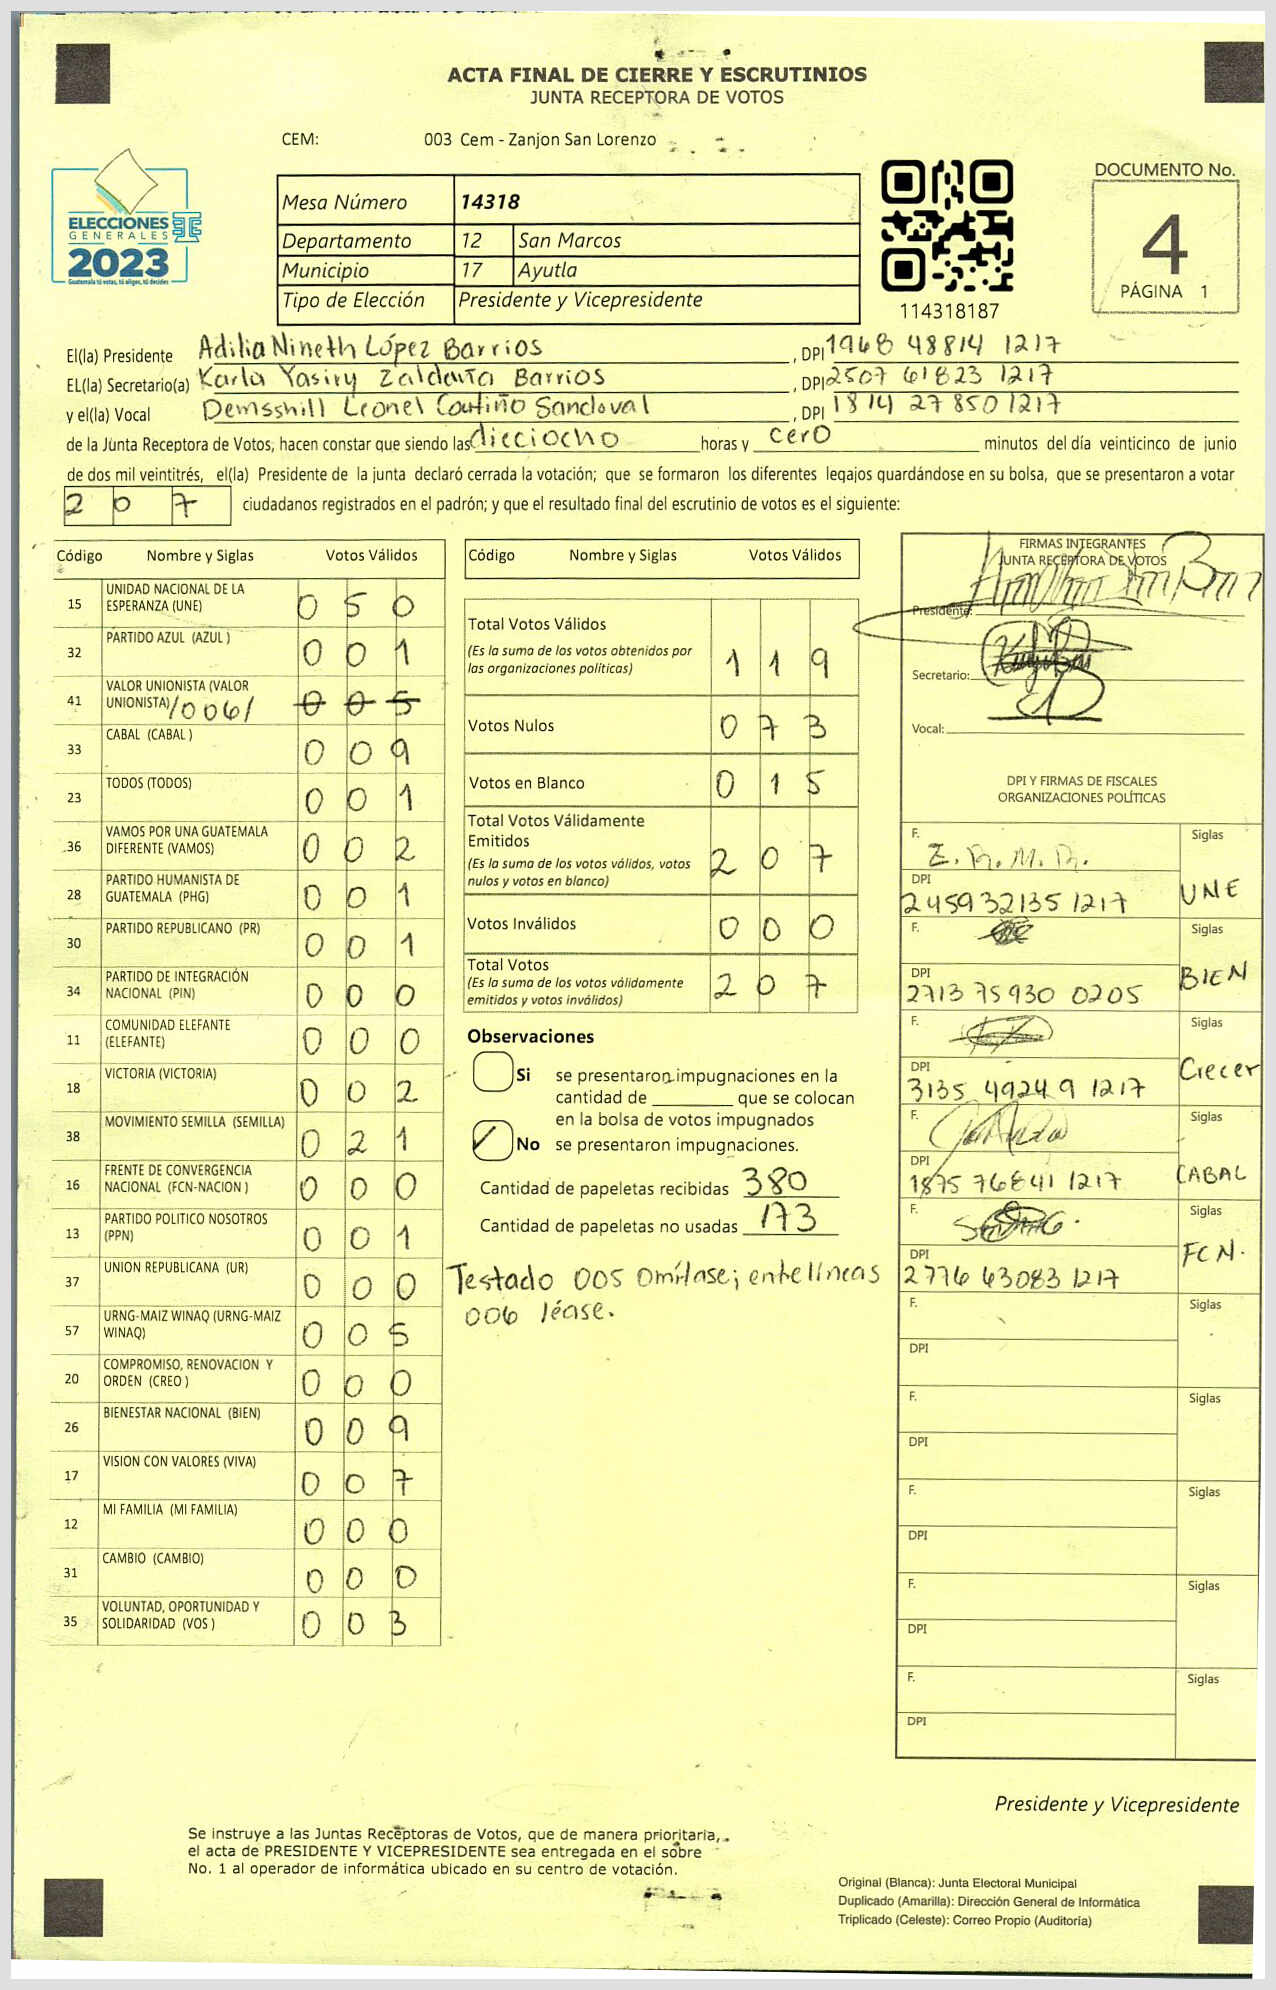 ACTA FINAL DE CIERRE Y ESCRUTINIOS
JUNTA RECEPTORA DE VOTOS
CEM: 003 Cem - Zanjon San Lorenzo
ELECCIONES
GENERALES
2023
Guatemala tú votas, tú eliges, tú decides
Mesa Número 14318
Departamento 12 San Marcos
Municipio 17 Ayutla
Tipo de Elección Presidente y Vicepresidente
114318187
DOCUMENTO No.
4
PÁGINA 1
El(la) Presidente Adilia Nineth López Barrios , DPI 1968 48814 1217
EL(la) Secretario(a) Karla Yasiry Zaldaña Barrios , DPI 2507 61823 1217
y el(la) Vocal Demsshill Leonel Coutiño Sandoval , DPI 1814 27850 1217
de la Junta Receptora de Votos, hacen constar que siendo las dieciocho horas y cero minutos del día veinticinco de junio
de dos mil veintitrés, el(la) Presidente de la junta declaró cerrada la votación; que se formaron los diferentes legajos guardándose en su bolsa, que se presentaron a votar
2 0 7 ciudadanos registrados en el padrón; y que el resultado final del escrutinio de votos es el siguiente:
Código Nombre y Siglas Votos Válidos
15 UNIDAD NACIONAL DE LA
ESPERANZA (UNE) 0 5 0
32 PARTIDO AZUL (AZUL ) 0 0 1
41 VALOR UNIONISTA (VALOR
UNIONISTA) /006/ 0 0 5
33 CABAL (CABAL ) 0 0 9
23 TODOS (TODOS) 0 0 1
36 VAMOS POR UNA GUATEMALA
DIFERENTE (VAMOS) 0 0 2
28 PARTIDO HUMANISTA DE
GUATEMALA (PHG) 0 0 1
30 PARTIDO REPUBLICANO (PR) 0 0 1
34 PARTIDO DE INTEGRACIÓN
NACIONAL (PIN) 0 0 0
11 COMUNIDAD ELEFANTE
(ELEFANTE) 0 0 0
18 VICTORIA (VICTORIA) 0 0 2
38 MOVIMIENTO SEMILLA (SEMILLA) 0 2 1
16 FRENTE DE CONVERGENCIA
NACIONAL (FCN-NACION ) 0 0 0
13 PARTIDO POLITICO NOSOTROS
(PPN) 0 0 1
37 UNION REPUBLICANA (UR) 0 0 0
57 URNG-MAIZ WINAQ (URNG-MAIZ
WINAQ) 0 0 5
20 COMPROMISO, RENOVACION Y
ORDEN (CREO ) 0 0 0
26 BIENESTAR NACIONAL (BIEN) 0 0 9
17 VISION CON VALORES (VIVA) 0 0 7
12 MI FAMILIA (MI FAMILIA) 0 0 0
31 CAMBIO (CAMBIO) 0 0 0
35 VOLUNTAD, OPORTUNIDAD Y
SOLIDARIDAD (VOS ) 0 0 3
Código Nombre y Siglas Votos Válidos
Total Votos Válidos
(Es la suma de los votos obtenidos por
las organizaciones políticas) 1 1 9
Votos Nulos 0 7 3
Votos en Blanco 0 1 5
Total Votos Válidamente
Emitidos
(Es la suma de los votos válidos, votos
nulos y votos en blanco) 2 0 7
Votos Inválidos 0 0 0
Total Votos
(Es la suma de los votos válidamente
emitidos y votos inválidos) 2 0 7
Observaciones
Si se presentaron impugnaciones en la
cantidad de ________ que se colocan
en la bolsa de votos impugnados
No se presentaron impugnaciones.
Cantidad de papeletas recibidas 380
Cantidad de papeletas no usadas 173
Testado 005 omítase; entrelíneas
006 léase.
FIRMAS INTEGRANTES
JUNTA RECEPTORA DE VOTOS
Presidente:
Secretario:
Vocal:
DPI Y FIRMAS DE FISCALES
ORGANIZACIONES POLÍTICAS
F. Z. R. M. R. Siglas
DPI
2459 32135 1217 UNE
F. Siglas
DPI
2713 75930 0205 BIEN
F. Siglas
DPI
3135 49249 1217 Crecer
F. Siglas
DPI
1875 76841 1217 CABAL
F. Siglas
DPI
2776 63083 1217 FCN.
F. Siglas
DPI
F. Siglas
DPI
F. Siglas
DPI
F. Siglas
DPI
F. Siglas
DPI
Presidente y Vicepresidente
Se instruye a las Juntas Receptoras de Votos, que de manera prioritaria,
el acta de PRESIDENTE Y VICEPRESIDENTE sea entregada en el sobre
No. 1 al operador de informática ubicado en su centro de votación.
Original (Blanca): Junta Electoral Municipal
Duplicado (Amarilla): Dirección General de Informática
Triplicado (Celeste): Correo Propio (Auditoría)